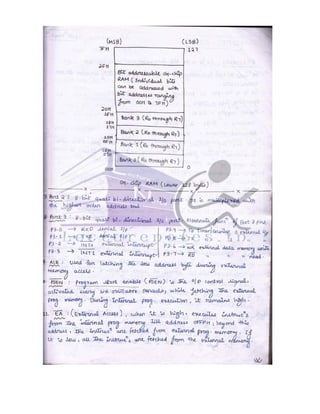 (MSB) (LSB)
7FH 127
2FH
Bit addressable on-chip
RAM (Individual bits
can be addressed with
bit addresses ranging
from 00H to 7FH)
20H
1FH Bank 3 (R0 through R7)
18H
17H Bank 2 (R0 through R7)
10H
0FH Bank 1 (R0 through R7)
08H
07H Bank 0 (R0 through R7)
00H 0
On-chip RAM (Lower 128 Bytes)
Port 2 : 8-bit quasi bi-directional I/O port is multiplexed with
the higher order address bus
Port 3 : 8-bit quasi bi-directional I/O port Alternate func of Port 3 pins
P3.0 → RXD serial I/P
P3.2 → INT0 external interrupt P3.6 → WR external data memory write
P3.3 → INT1 external interrupt P3.7 → RD " " " read.
ALE : Used for latching the low address byte during external
memory access.
PSEN : Program store enable (PSEN) is the O/P control signal.
activated every six oscillator periods, while fetching the external
prog memory. During internal prog. execution, it remains high.
EA : (External Access), when it is high, executes instruc's
from the internal prog memory till address 0FFFH, beyond this
address, the instruc's are fetched from external prog memory. If
it is low, all the instruc's are fetched from the external memory